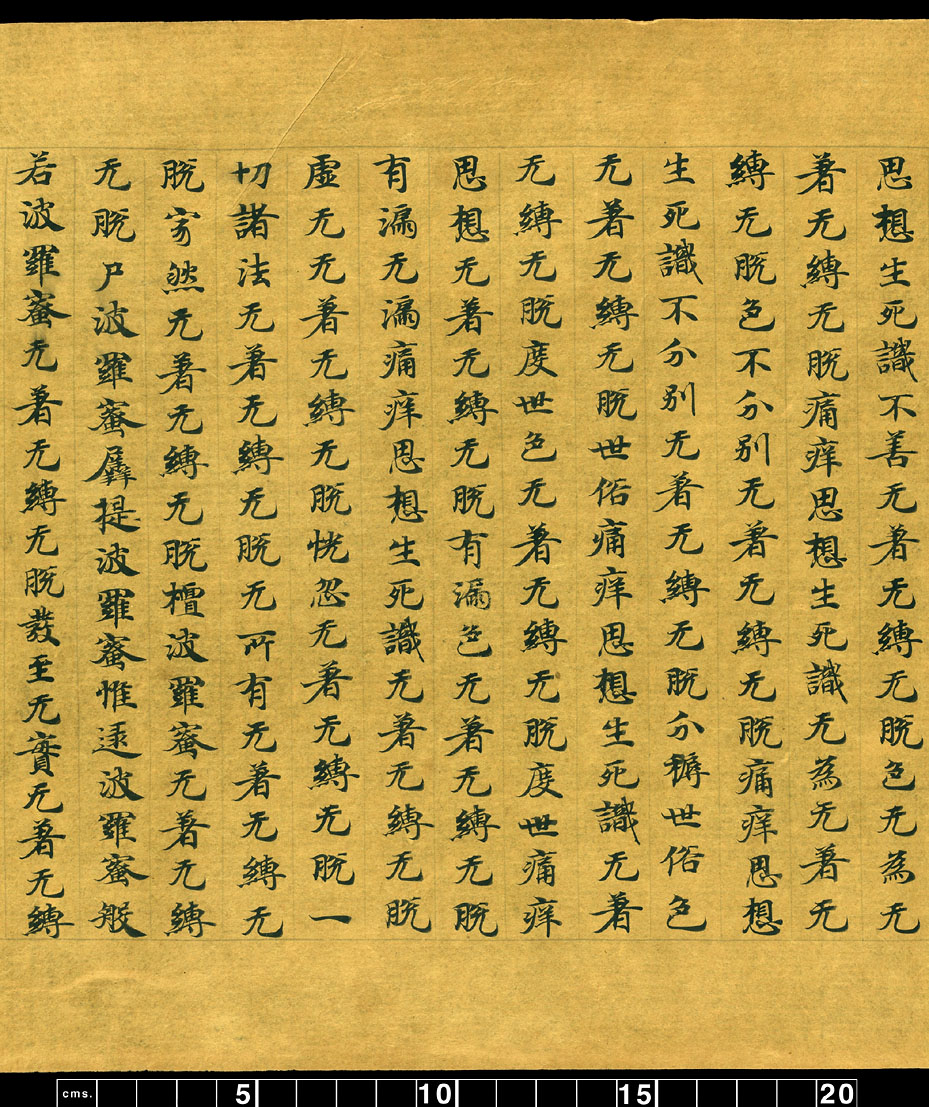 思想生死識不善无著无縛无脫色无為无
著无縛无脫痛痒思想生死識无為无著无
縛无脫色不分別无著无縛无脫痛痒思想
生死識不分別无著无縛无脫分稱世俗色
无著无縛无脫世俗痛痒思想生死識无著
无縛无脫度世色无著无縛无脫度世痛痒
思想无著无縛无脫有漏色无著无縛无脫
有漏无漏痛痒思想生死識无著无縛无脫
虛无无著无縛无脫恍忽无著无縛无脫一
切諸法无著无縛无脫无所有无著无縛无
脫寂然无著无縛无脫檀波羅蜜无著无縛
无脫尸波羅蜜羼提波羅蜜惟逮波羅蜜般
若波羅蜜无著无縛无脫發至无實无著无縛